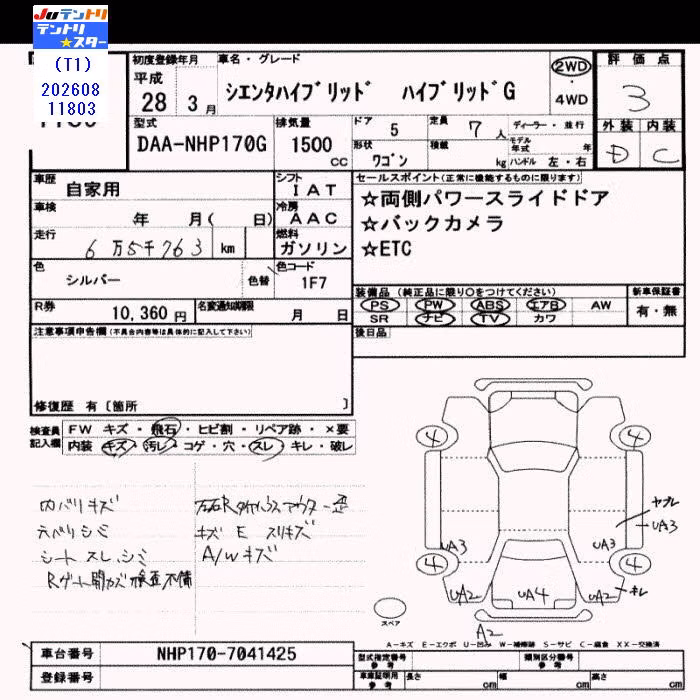 JUテントリ
テントリ★スター
(T1)
202608
11803
初度登録年月
平成
28 3月
車名・グレード
シエンタハイブリッド ハイブリッドG
2WD
・
4WD
評価点
3
外装 内装
D C
型式
DAA-NHP170G
排気量
1500 CC
ドア 5
定員 7人
ディーラー・並行
モデル年式 年
形状 ワゴン
積載 kg
ハンドル 左・右
車歴 自家用
シフト IAT
車検 年 月( 日)
冷房 AAC
走行 6万5千763 km
燃料 ガソリン
色 シルバー 色替
色コード 1F7
R券 10,360円
名変通知期限 月 日
セールスポイント(正常に機能するものに限ります)
☆両側パワースライドドア
☆バックカメラ
☆ETC
装備品(純正品に限り○をつけてください)
新車保証書
PS PW ABS エアB AW
SR ナビ TV カワ
有・無
後日品
注意事項申告欄(不具合内容等は具体的に記入して下さい)
修復歴 有〔箇所 〕
検査員記入欄
FW キズ・飛石・ヒビ割・リペア跡・×要
内装 キズ・汚レ・コゲ・穴・スレ・キレ・破レ
内バリキズ
天ベリシミ
シートスレ、シミ
キズ E スリキズ
A/Wキズ
4 4
4 4
ヤブレ
UA3
UA3 UA3
UA2 UA4 UA2
キレ
A2
スペア
A-キズ E-エクボ U-凹み W-補修跡 S-サビ C-腐食 XX-交換済
車台番号 NHP170-7041425
登録番号
型式指定番号 参考
類別区分番号 参考
車庫証明用 参考
長さ cm
幅 cm
高さ cm